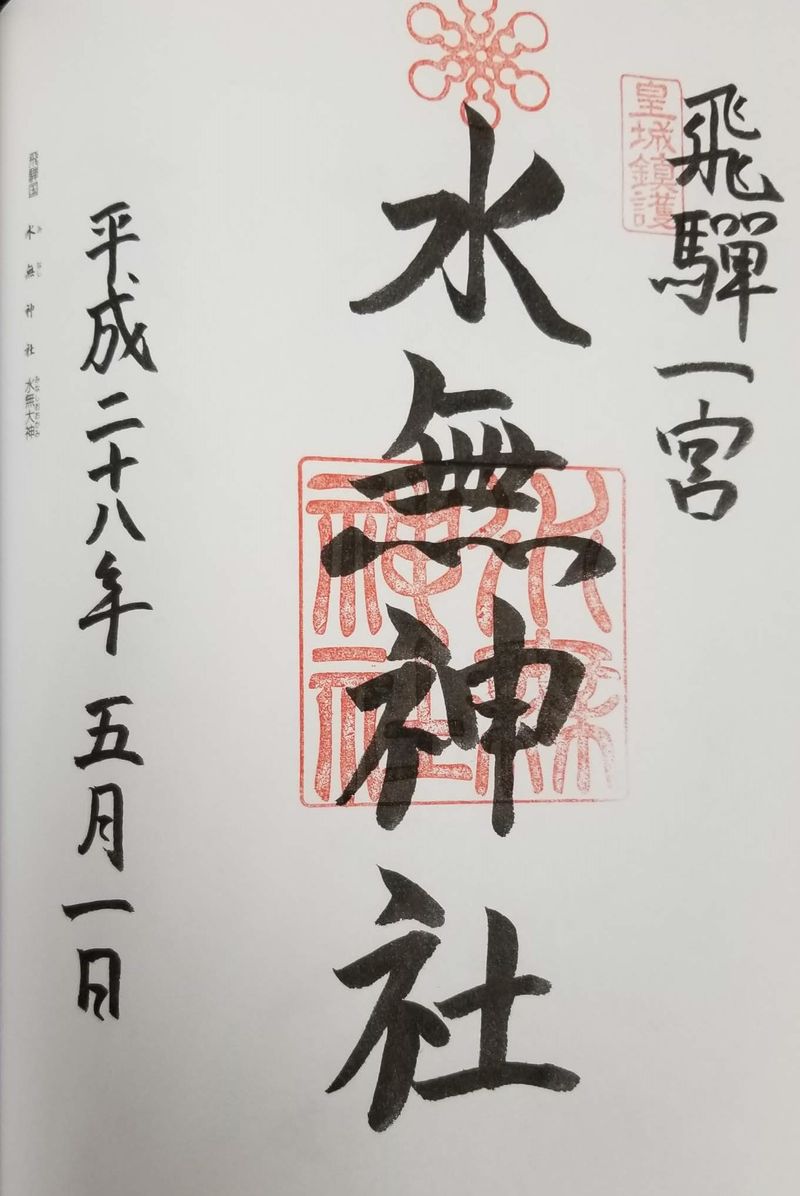 飛騨一宮
皇城鎮護
水無神社
水無神社
平成二十八年 五月一日
飛騨国 水無神社 水無大神